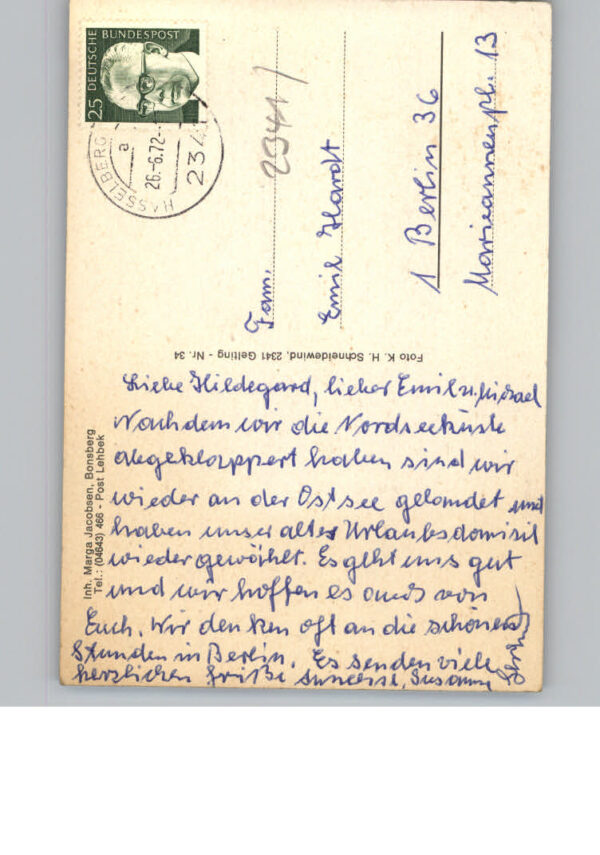 DEUTSCHE BUNDESPOST
25
HASSELBERG
a
26.-6.72.-
2341
23417
Fam.
Emil Hardt
1 Berlin 36
Mariannenpl. 13
Foto K. H. Schneidewind, 2341 Gelting - Nr. 34
Inh. Marga Jacobsen, Bonsberg
Tel.: (04643) 466 - Post Lehbek
Liebe Hildegard, lieber Emil u. Michael
Nachdem wir die Nordseeküste
abgeklappert haben sind wir
wieder an der Ostsee gelandet und
haben unser altes Urlaubsdomizil
wieder gewählt. Es geht uns gut
und wir hoffen es auch von
Euch. Wir denken oft an die schönen
Stunden in Berlin. Es senden viele
herzlichen Grüße Susanne